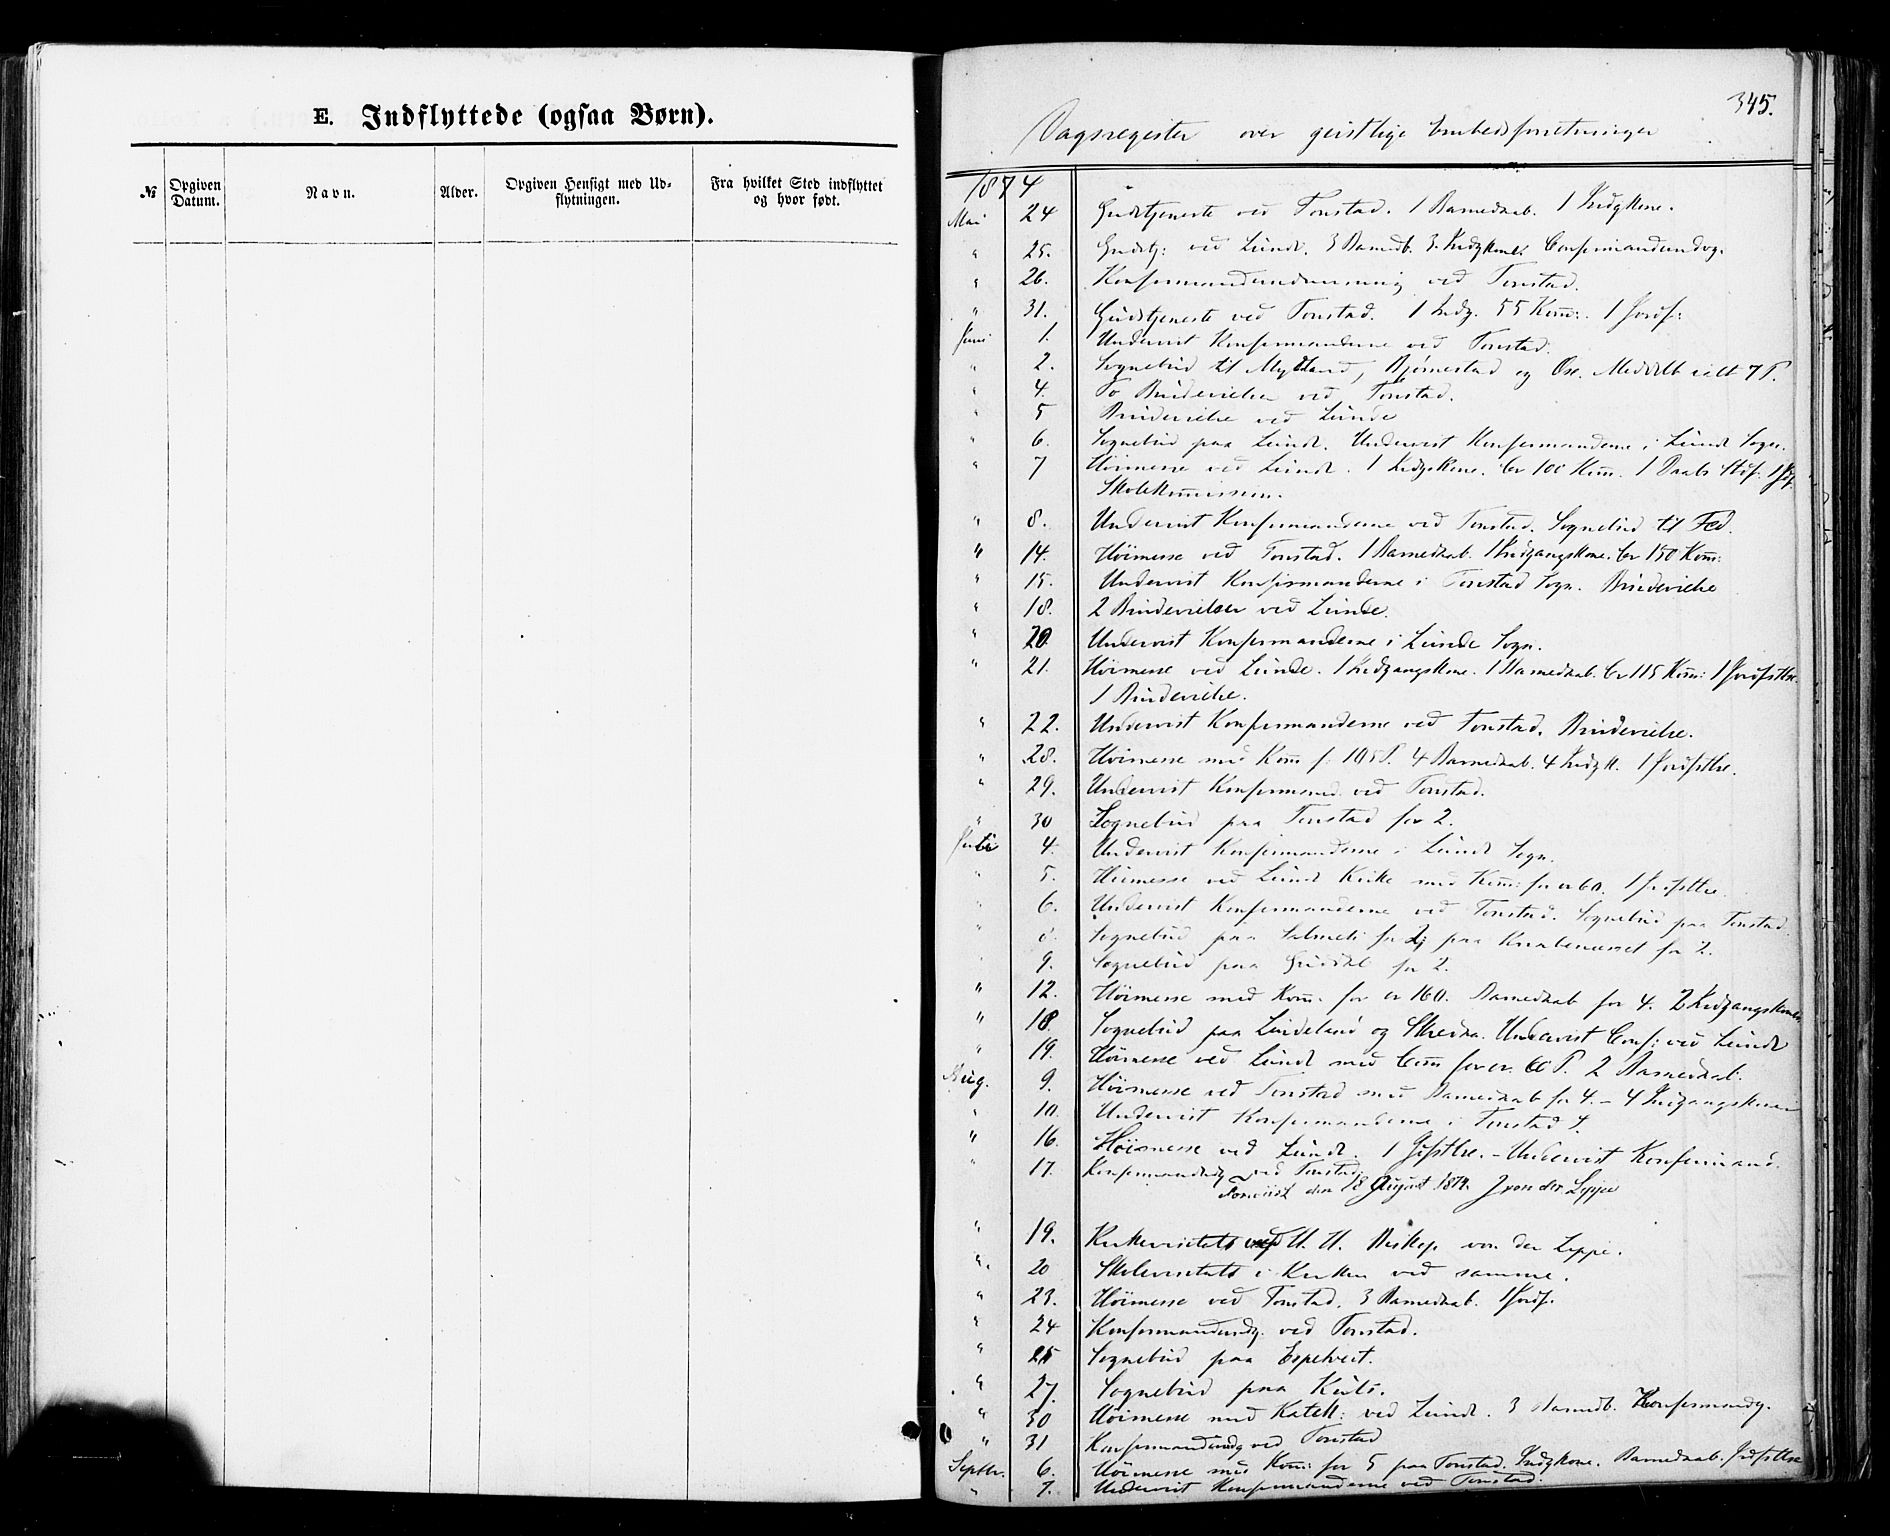 E. Indflyttede (ogsaa Børn).
№
Opgiven Datum.
Navn.
Alder.
Opgiven Hensigt med Ud-
flytningen.
Fra hvilket Sted indflyttet
og hvor født.
345.
Dagsregister over geistlige Embedsforretninger
1874
Mai 24 Gudstjeneste ved Tonstad. 1 Barnedaab. 1 Indgkone.
" 25. Gudstj: ved Lunde. 3 Barnedb. 3 Indgkoner. Confirmandundvg.
" 26. Konfirmandundervisning ved Tonstad.
" 31. Gudstjeneste ved Tonstad. 1 Indg. 55 Kom: 1 Jordf:
Juni 1. Undervist Konfirmanderne ved Tonstad.
" 2. Sognebud til Mydland, Bjørnestad og Ose. Meddelt ialt 7 P.
" 4. To Brudevielser ved Tonstad.
" 5 Brudevielse ved Lunde
" 6. Sognebud paa Lunde. Undervist Konfirmanderne i Lunde Sogn.
" 7 Høimesse ved Lunde. 1 Indgkone. Cr 100 Kom. 1 Daabs Stdf.
Skolekommission.
" 8. Undervist Konfirmanderne ved Tonstad. Sognebud til Fed.
" 14. Høimesse ved Tonstad. 1 Barnedaab. 1 Indgangskone. Cr 150 Kom:
" 15. Undervist Konfirmanderne i Tonstad Sogn. Brudevielse
" 18. 2 Brudevielser ved Lunde.
" 20. Undervist Konfirmanderne i Lunde Sogn.
" 21. Høimesse ved Lunde. 1 Indgangskone. 1 Barnedaab. Cr 115 Kom: 1 Jordfstlse.
1 Brudevielse.
" 22. Undervist Konfirmanderne ved Tonstad. Brudevielse.
" 28. Høimesse med Kom f. 105 P. 4 Barnedaab. 4 Indgk. 1 Jordfstlse.
" 29. Undervist Konfirmand ved Tonstad.
" 30 Sognebud paa Tonstad for 2.
Juli 4. Undervist Konfirmanderne i Lunde Sogn.
" 5. Høimesse ved Lunde Kirke med Kom: for cr 60. 1 Jordfstlse.
" 6. Undervist Konfirmanderne ved Tonstad. Sognebud paa Tonstad.
" 8. Sognebud paa Salmeli for 2; paa Knabenæsset for 2.
" 9. Sognebud paa for 2.
" 12. Høimesse med Kom. for cr 160. Barnedaab for 4. 2 Indgangskoner.
" 18. Sognebud paa Lindeland og Skreaa. Undervist Conf: ved Lunde
" 19. Høimesse ved Lunde med Com for cr. P. 2 Barnedaab.
Aug. 9. Høimesse ved Tonstad med Barnedaab for 4. – 4 Indgangskoner
" 10. Undervist Konfirmanderne i Tonstad S.
" 16. Høimesse ved Lunde. 1 Jjfstlse. – Undervist Konfirmand.
" 17. Konfirmandundg ved Tonstad.
den 18 August 1874. J von der Lippe
" 19. Kirkevisitats ved H. H. Biskop von der Lippe.
" 20 Skolevisitats i Kirken ved samme.
" 23. Høimesse ved Tonstad. 3 Barnedaab. 1 Jordf.
" 24 Konfirmandundg. ved Tonstad.
" 25 Sognebud paa Espetveit.
" 27. Sognebud paa
" 30 Høimesse med Katek: ved Lunde. 3 Barnedb. Konfirmandg.
" 31 Konfirmandundg ved Tonstad
Septbr. 6. Høimesse med Kom: for 5 paa Tonstad. Indgkone. Barnedaab. Jrdfstlse
" 7. Undervist Konfirmanderne ved Tonstad.